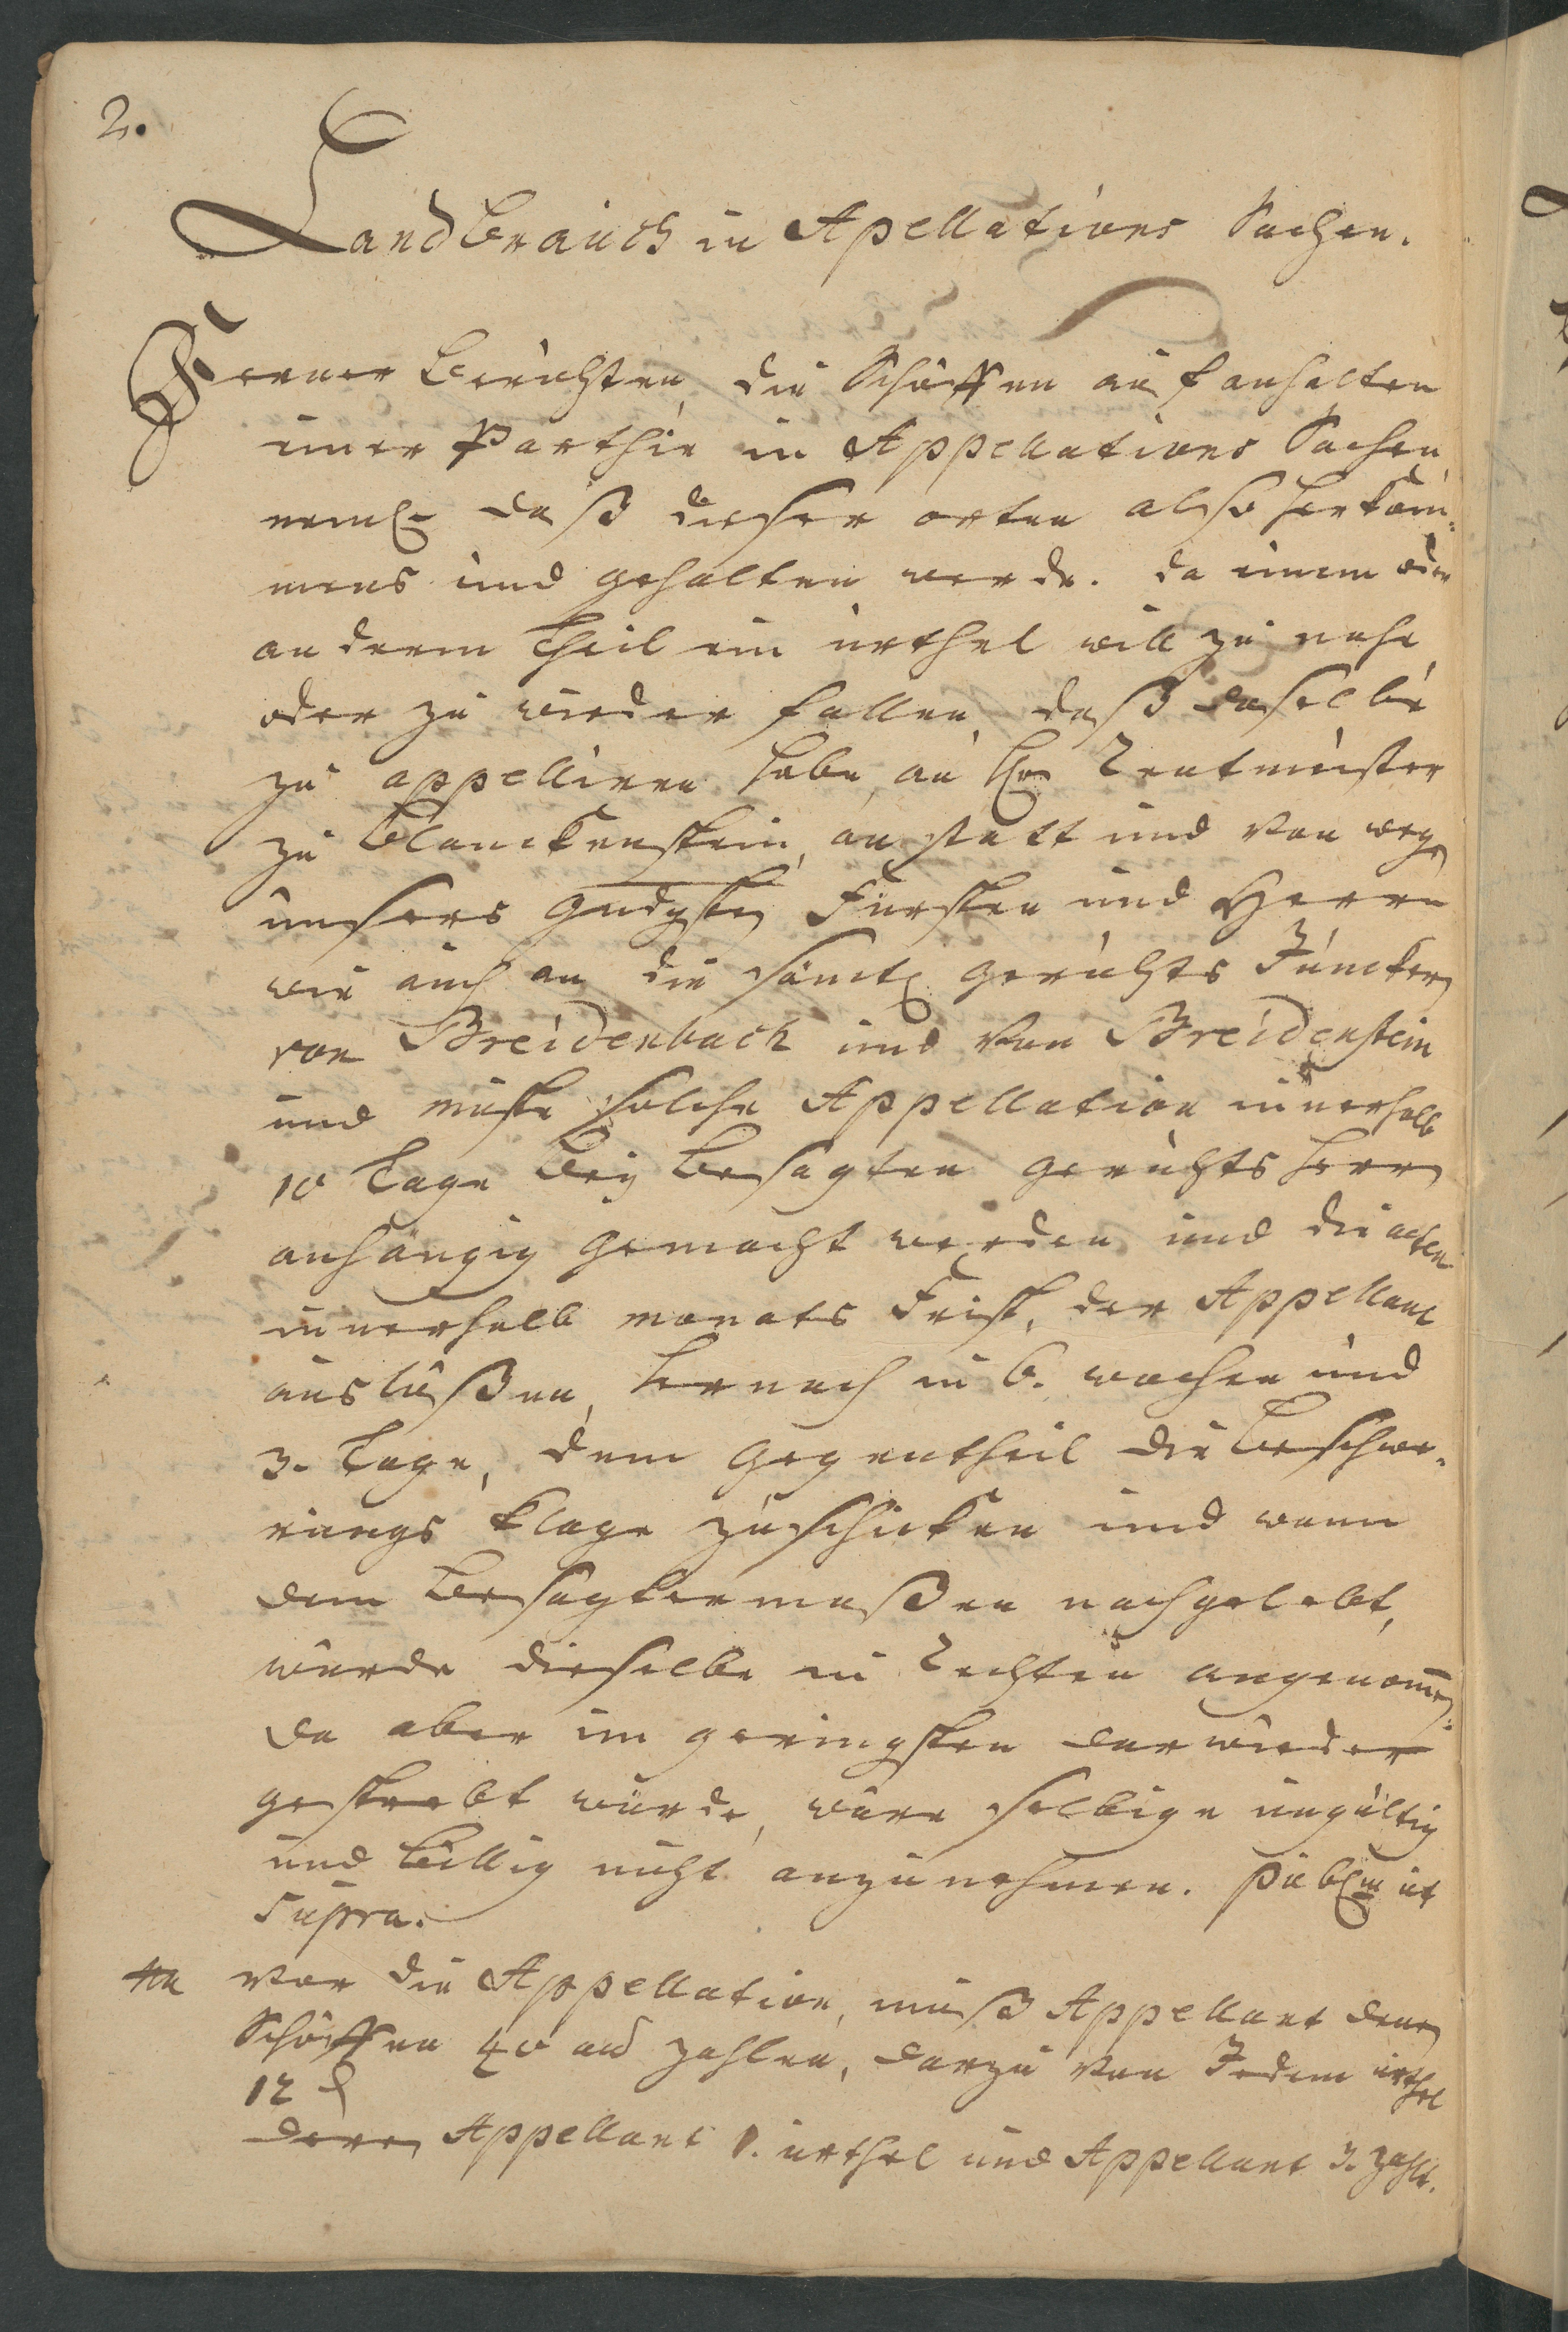 2.
Landbrauch in Apellations Sachen.
Ferner berichten die Schöffen auf anhalten
einer Parthie in Appellations Sachen
neml. daß dieser orten also herkom-
mens und gehalten werde. da einem oder
anderem Theil ein urthel will zu nahe
oder zu wieder fallen, daß daselbe
zu appelliren habe, an Hrn Rentmeister
zu Blanckenstein, anstatt und von wegen
unsers gndgsten Fürsten und Herrn
wie auch an die sämtl. gerichts Juncker
von Breidenbach und von Breidenstein
und müste solche Appellation innerhalb
10 Tage bey besagten gerichts Herrn
anhängig gemacht werden und die acten
innerhalb monats Frist, der Appellant
auslößen, hernach in 6. wochen und
3. Tage, dem gegentheil die beschwe-
rungs Klage zuschicken und wann
dem besagtermaßen nachgelebt,
würde dieselbe in Rechten angenomen.
da aber im geringsten darwieder
gestrebt würde, wäre selbige ungültig
und billig nicht anzunehmen. Publm ut
supra.
vor die Appellation, muß Appellant denen
Schöffen 40 alb zahlen, darzu von Jedem urthel
12 d
Appellant 1. urthel und Appellant 3. zahlt.